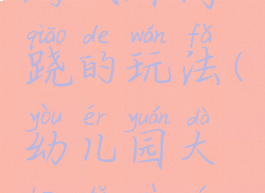 qiāo de wán fǎ
跷的玩法(
yòu ér yuán dà
幼儿园大